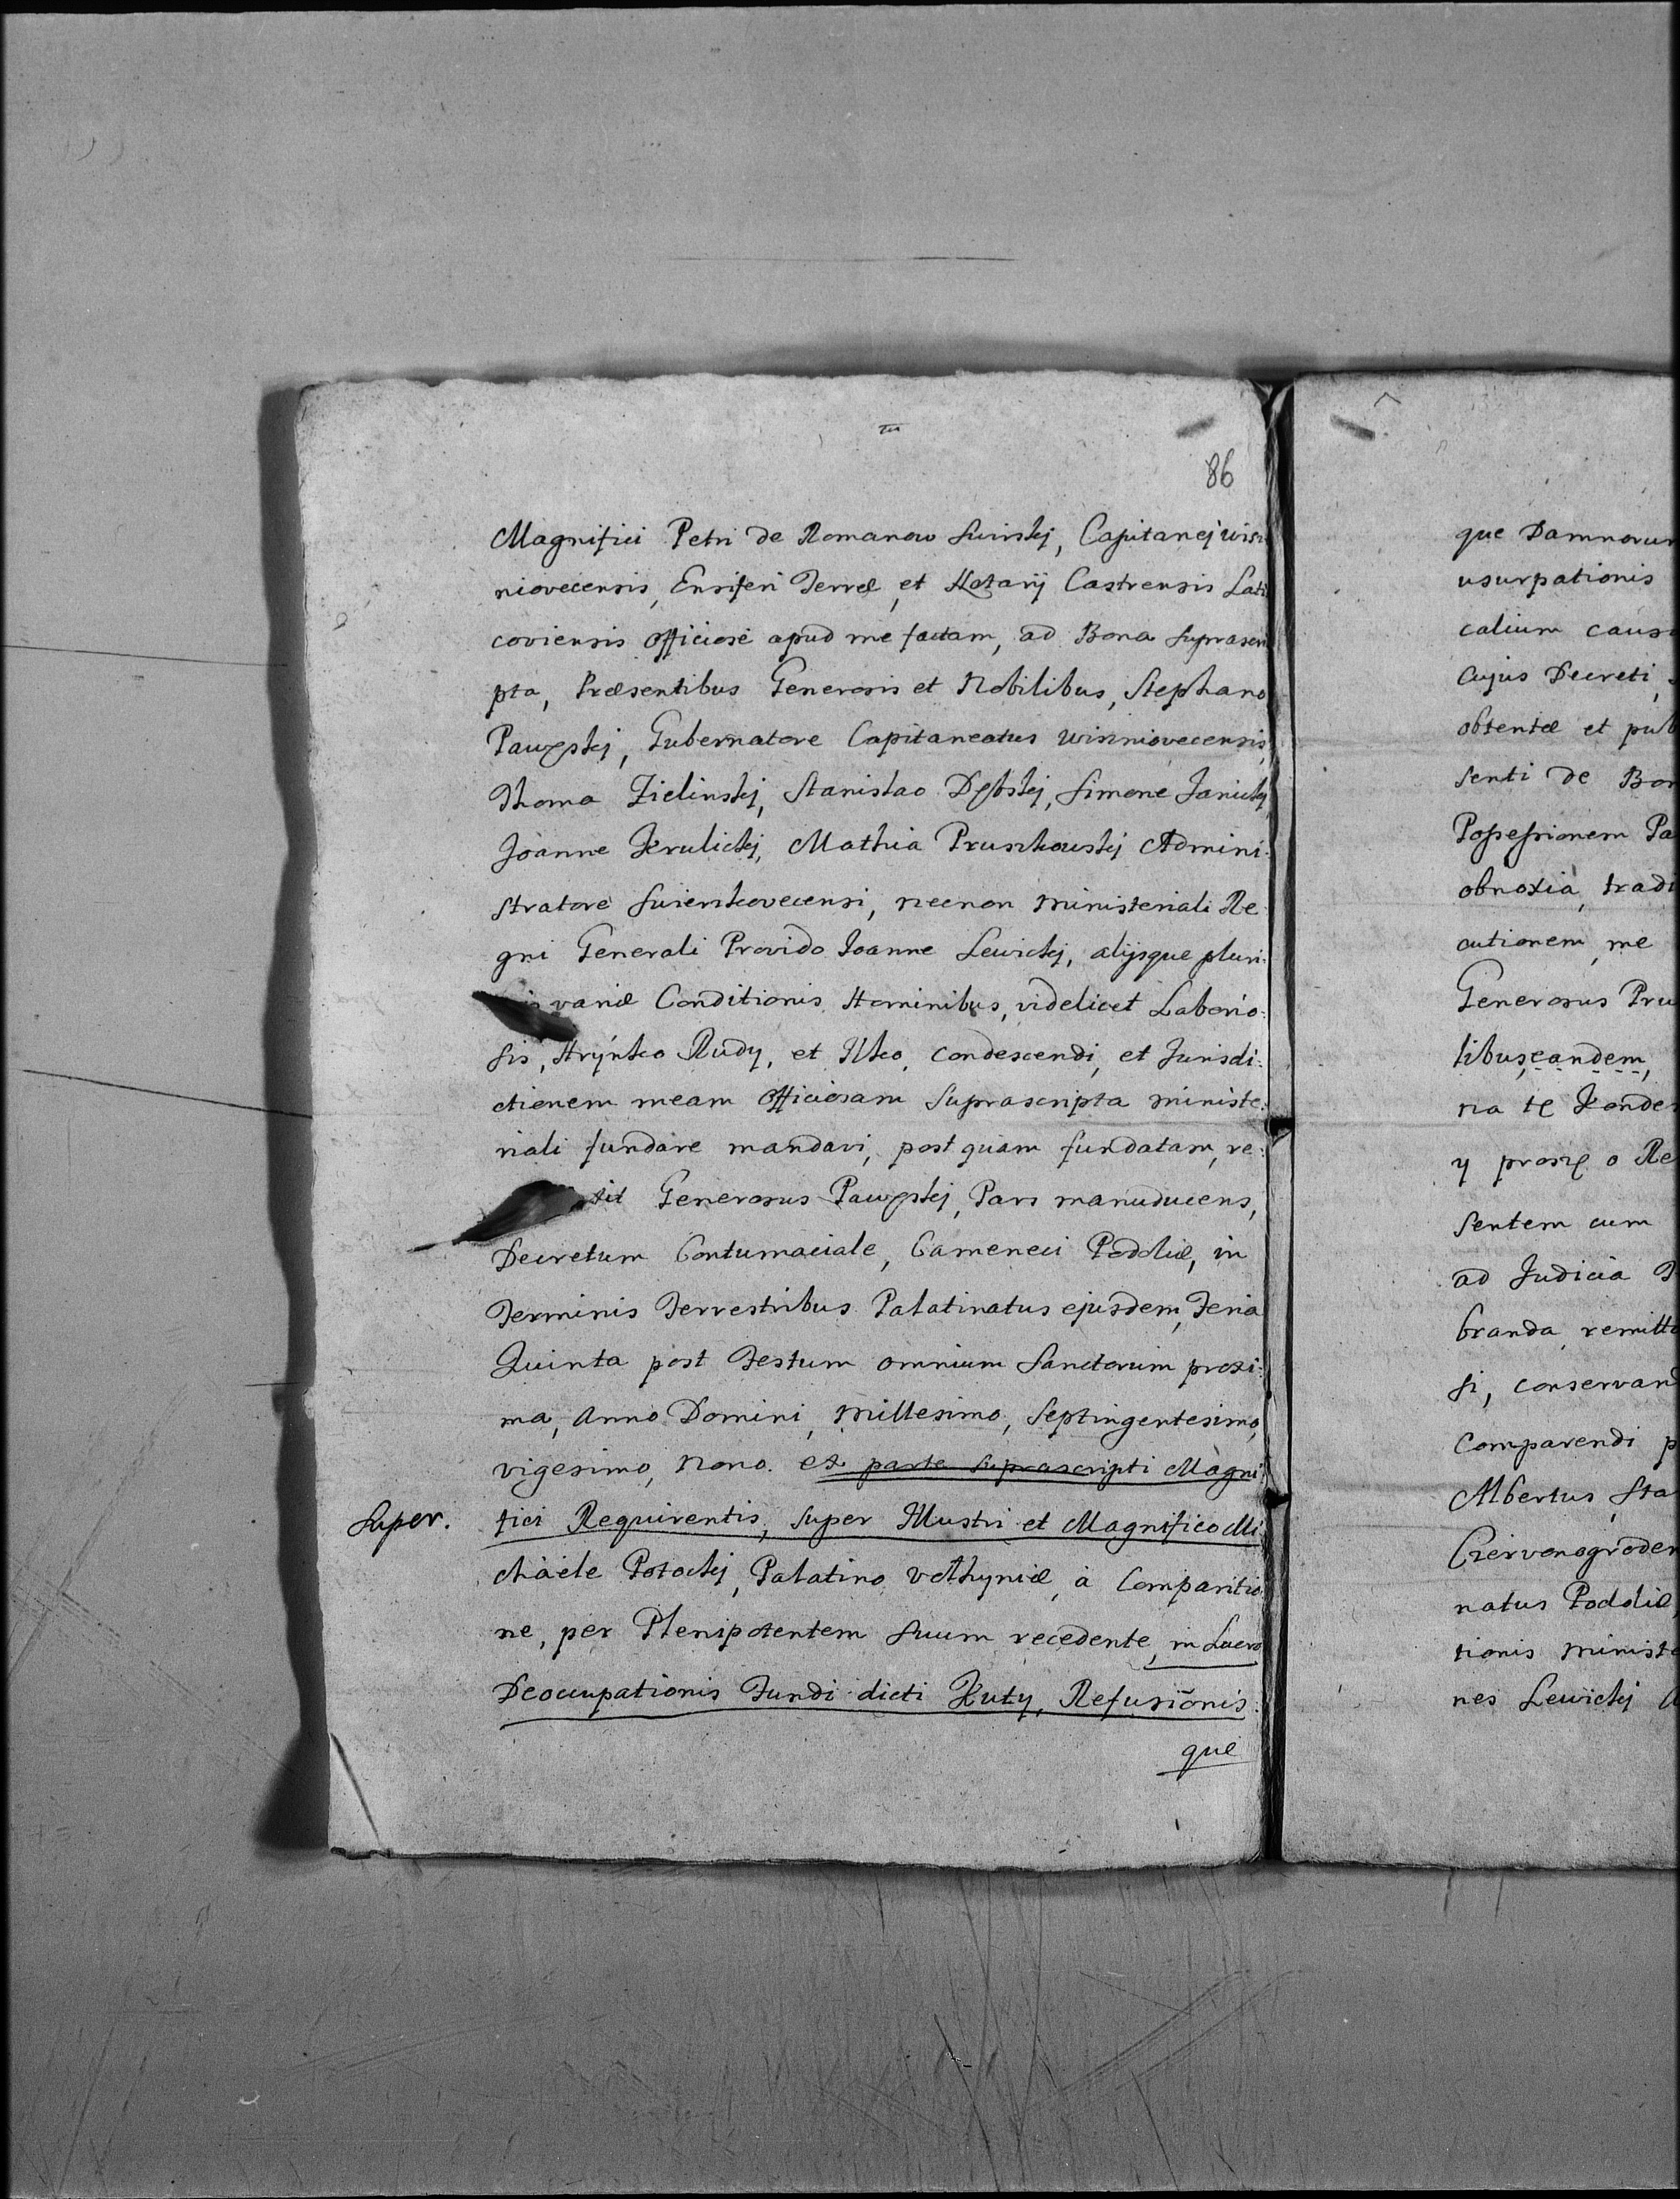 86
Magnifici Petri de Romanow Swirskj, Capitanej Wisz
niovecensis, Ensiferi Terræ, et Notarij Castrensis Lati
coviensis Officiosè apud me factam, ad Bona Suprascri
pta, Præsentibus Generosis et Nobilibus, Stephano
Pawęskj, Gubernatore Capitaneatus Wiszniovecensis,
Thoma Zielinskj, Stanislao Dębskj, Simone Janickj,
Joanne Krulickj, Mathia Pruszkowskj Admini:
stratore Swierszkovecensi, necnon Ministeriali Re
gni Generali Provido Joanne Lewickj, alijsque pluri:
variæ Conditionis Hominibus, videlicet Laborio:
sis, Hryńko Rudy, et Ilko, condescendi, et Jurisdi:
ctionem meam Officiosam Suprascripta Ministe:
riali fundare mandavi, post quam fundatam, re:
sit Generosus Pawęskj, Pars manuducens,
Decretum Contumaciale, Cameneci Podoliæ, in
Terminis Terrestribus Palatinatus ejusdem, Feria
Quinta post Festum omnium Sanctorum proxi:
ma, Anno Domini, Millesimo, Septingentesimo,
vigesimo, Nono. ex parte Suprascripti Magni
Super. fici Requirentis, Super Illustri et Magnifico Mi
chàéle Potockj, Palatino Volhyniæ, à Comparitio
ne, per Plenipotentem Suum recedente, in Lucro
Deoccupationis Fundi dicti Kuty, Refusionis:
que
que Damnorum
usurpationis
calium caus
Cujus Decreti,
obtentæ et pub
senti de Bon
Possessionem Pa
obnoxià, tradi
cutionem, me
Generosus Pru
tibus, eandem,
na tę Konde
y proszę o Re
sentem cum
ad Judicia
branda remitt
si, conservand
Comparendi p
Albertus, Sta
Czervonogroden
natus Podoliæ
tionis Ministe
nes Lewickj